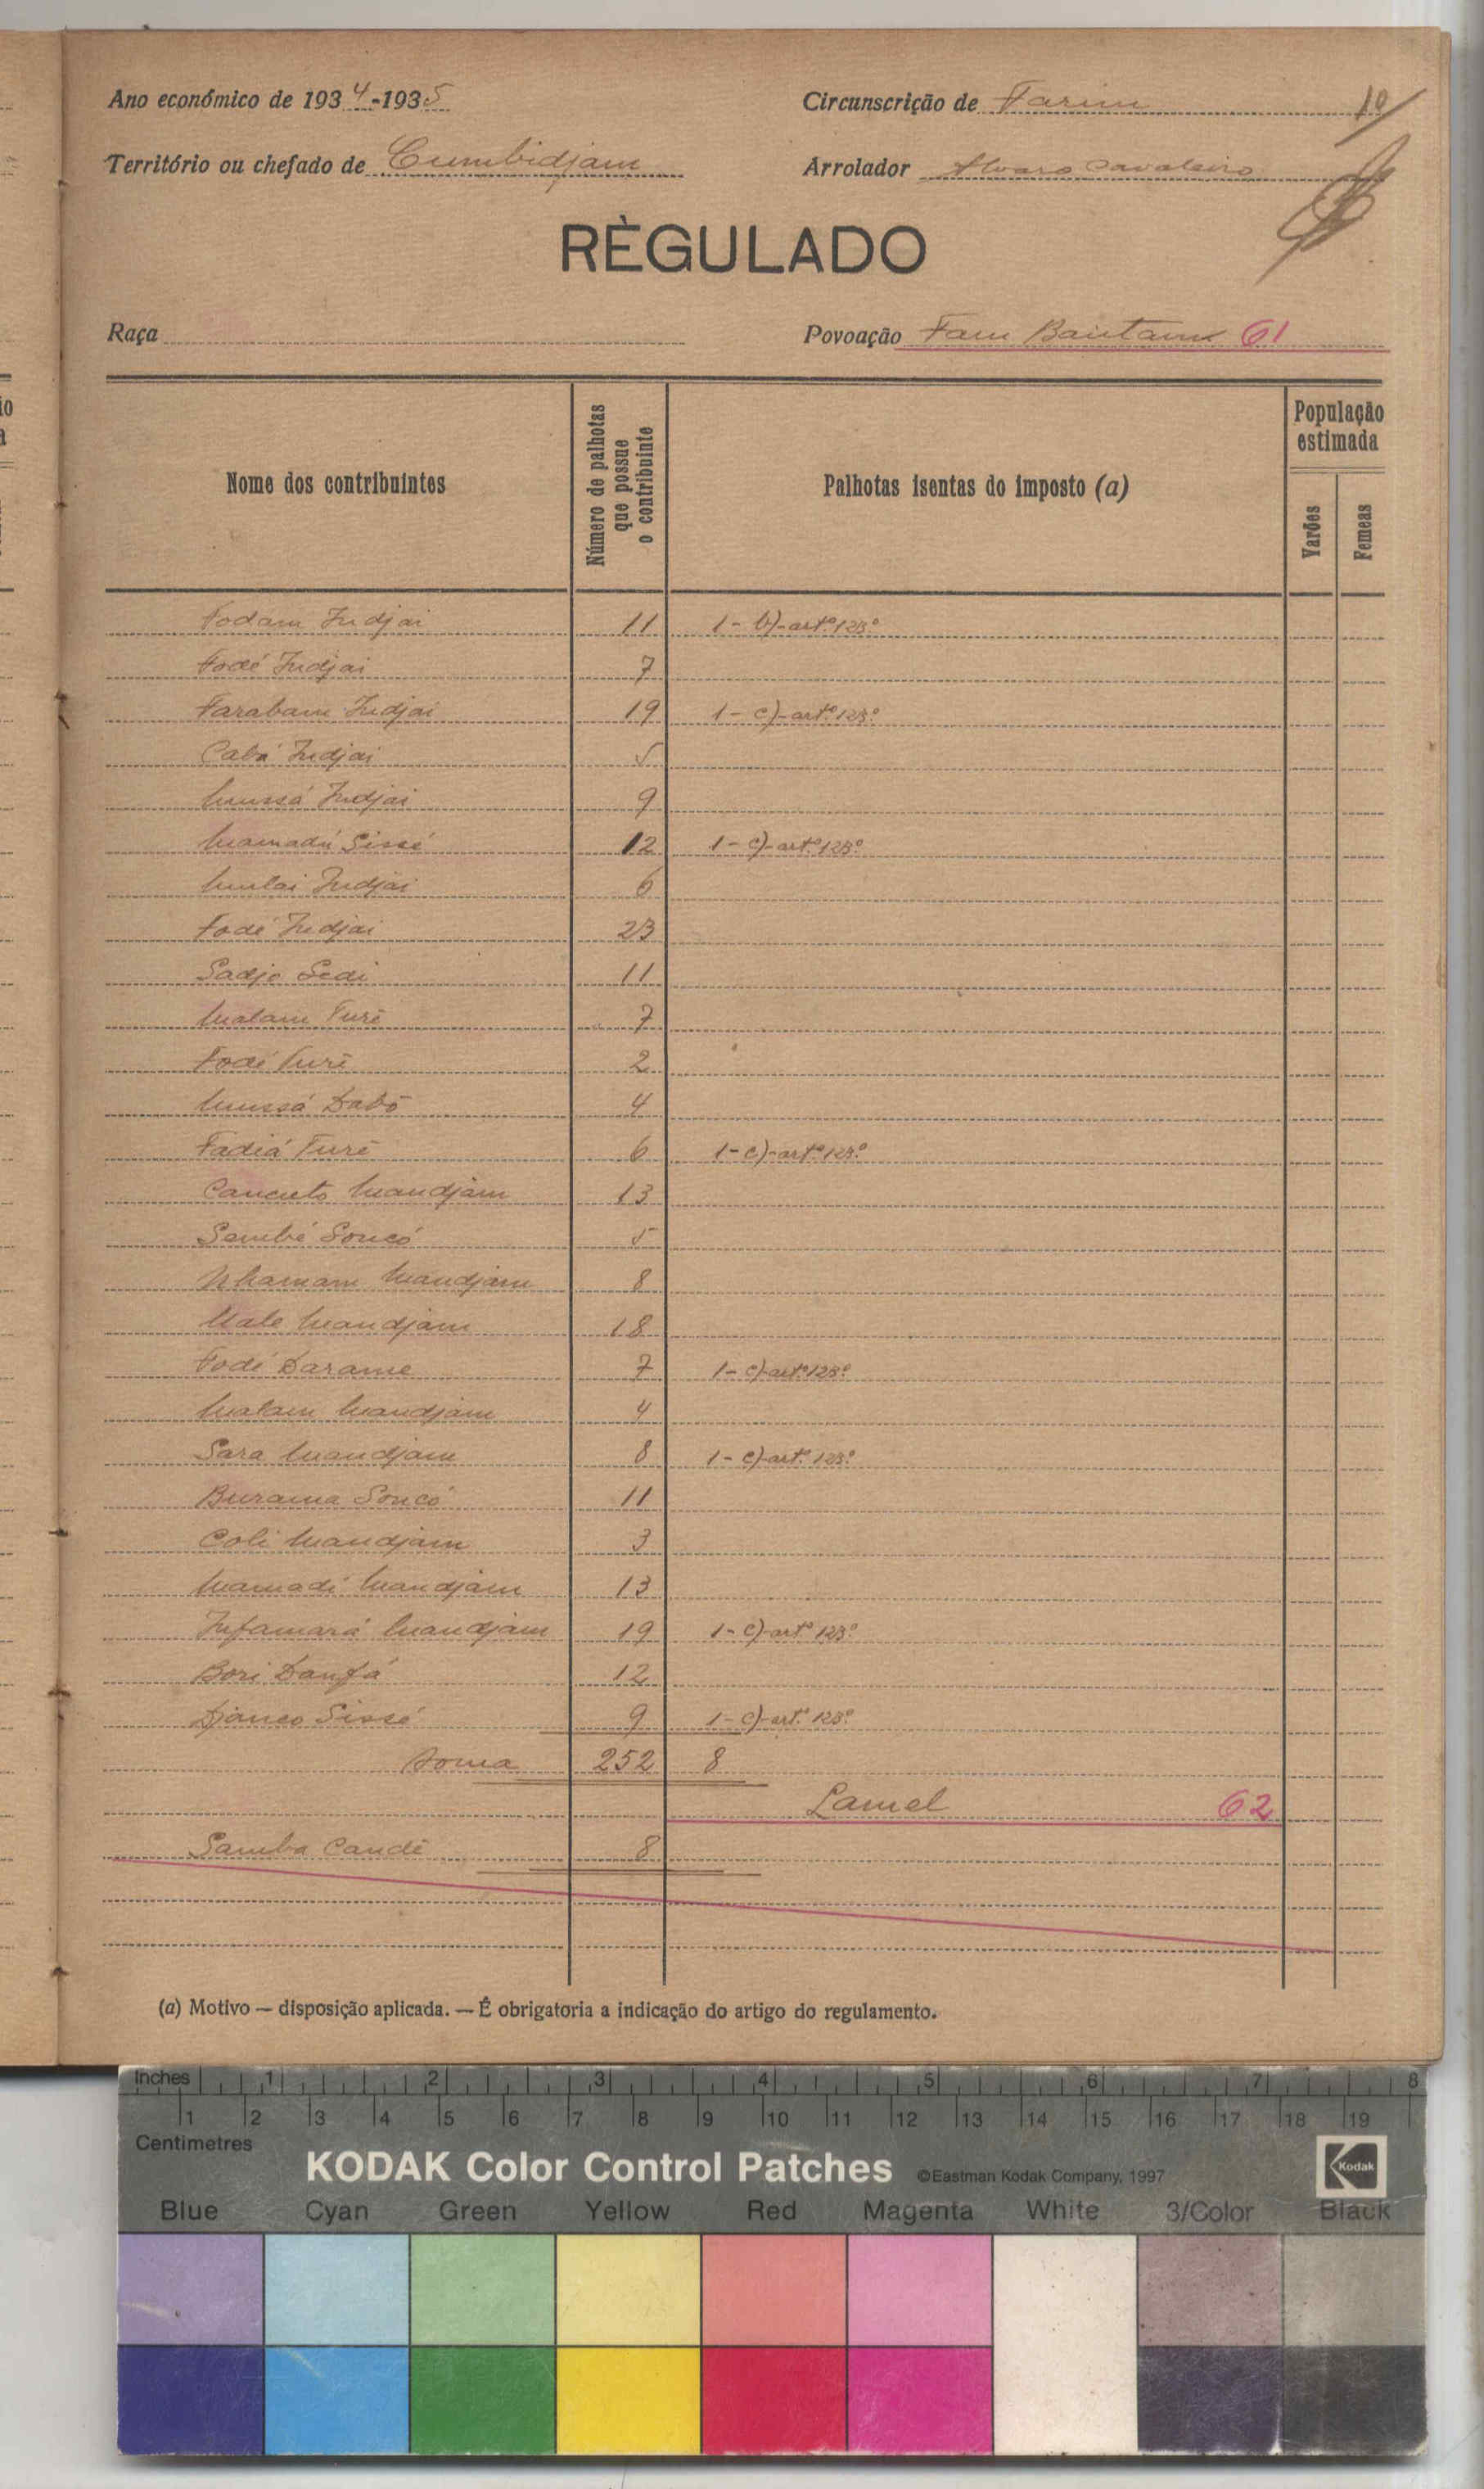 Ano económico de 1934-1935
Circunscrição de Farim 10
Território ou chefado de Cumbidjam
Arrolador Alvaro Cavaleiro
RÈGULADO
Raça
Povoação Fam Bantam 61
Nome dos contribuintes
Número de palhotas que possue o contribuinte
Palhotas isentas do imposto (a)
População estimada
Varões
Femeas
Fodam Indjai 11 1- b)-artº 123º
Fodé Indjai 7
Farabam Indjai 19 1- c)-artº 123º
Cabá Indjai 5
Mussá Indjai 9
Mamadú Sissé 12 1- c)-artº 123º
Mulai Indjai 6
Fodé Indjai 23
Sadjo Sedi 11
Malam Turé 7
Fodé Turé 2
Mussá Dabó 4
Fadiá Turé 6 1- c)-artº 123º
Cancuto Mandjam 13
Sambé Soncó 5
Nhamam Mandjam 8
Male Mandjam 18
Fodé Darame 7 1- c)-artº 123º
Malam Mandjam 4
Sara Mandjam 8 1- c)-artº 123º
Burama Soncó 11
Coli Mandjam 3
Mamadi Mandjam 13
Infamará Mandjam 19 1- c)-artº 123º
Bori Danfá 12
Djanco Sissé 9 1- c)-artº 123º
Soma 252 8
Lamel 62
Samba Candé 8
(a) Motivo — disposição aplicada. — É obrigatoria a indicação do artigo do regulamento.
Inches 1 2 3 4 5 6 7 8
1 2 3 4 5 6 7 8 9 10 11 12 13 14 15 16 17 18 19
Centimetres
KODAK Color Control Patches ©Eastman Kodak Company, 1997 Kodak
Blue Cyan Green Yellow Red Magenta White 3/Color Black